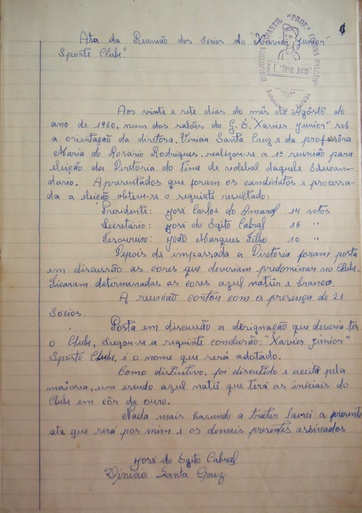 Ata da Reunião dos Socios do "Xavier Junior"
Sporte Clube"
Aos vinte e sete dias do mês de Agôsto do
ano de 1960, num dos salões do G. E. "Xavier Junior" sob
a orientação da diretora, Vinicia Santa Cruz e da professôra
Maria do Rosário Rodrigues, realizou-se a 1ª reunião para
eleição da Diretoria do time de voleibol daquele Educan-
dario. Apresentados que foram os candidatos e processa-
da a eleição obteve-se o seguinte resultado:
Presidente: José Carlos do Amaral 14 votos
Secretário: José do Egito Cabral 16 "
Tesoureiro: João Marques Filho 10 "
Depois de impassada a Diretoria foram posta
em discussão as cores que deveriam predominar no Clube.
Ficaram determinadas as cores azul natiér e branco.
A reunião contou com a presença de 21
Socios.
Posta em discussão a designação que deveria ter
o Clube, chegou-se a seguinte conclusão: "Xavier Junior"
Sporte Clube, é o nome que será adotado.
Como distintivo, foi discutido e aceito pela
maioria, um escudo azul natié que terá as iniciais do
Clube em côr de ouro.
Nada mais havendo a tratar lavrei a presente
ata que será por mim e os demais presentes assinados
José do Egito Cabral
Vinicia Santa Cruz